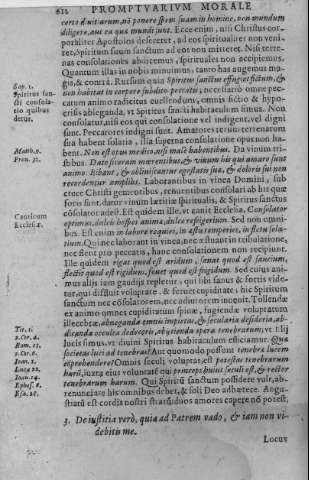 612 PROMPTVARIVM MORALE
certo diuitiarum, nō ponere spem suam in homine, non mundum
diligere, aut ea quæ mundi sunt. Ecce enim, nisi Christus cor-
poraliter Apostolos desereret, ad eos spiritualiter non veni-
ret, Spiritum suum sanctum ad eos non mitteret. Nisi terre-
nas consolationes abiiceremus, spirituales non accipiemus.
Quantum illas in nobis minuimus, tanto has augemus ma-
gis, & contrà. Rursum quia Spiritus sanctus effugiet fictum, &
non habitat in corpore subdito peccatis; necessariò omne pec-
catum animo radicitus euellendum, omnis fictio & hypo-
crisis ableganda, vt Spiritus sancti habitaculum simus. Non
consolatur, nisi eos qui consolatione vel indigent, vel digni
sunt. Peccatores indigni sunt. Amatores rerum terrenarum
sua habent solaria, illa superna consolatione opus non ha-
bent. Non est opus medico, nisi malè habentibus. Da vinum tri-
stibus. Date siceram mœrentibus, & vinum his qui amaro sunt
animo. Bibant, & obliuiscantur egestatis suæ, & doloris sui non
recordentur amplius. Laborantibus in vinea Domini, sub
cruce Christi gementibus, renuntibus consolari ab his quæ
foris sunt, datur vinum lætitiæ spiritualis, & Spiritus sanctus
cōsolator adest. Est quidem ille, vt canit Ecclesia, Consolator
optimus, dulcis hospes animæ, dulce refrigerium. Sed non omni-
bus. Est enim in labore requies, in æstu temperies, in fletu sola-
tium. Qui nec laborant in vinea, nec æstuant in tribulatione,
nec flent pro peccatis, hanc consolationem non recipiunt.
Ille quidem rigat quod est aridum, sanat quod est saucium,
flectit quod est rigidum, fouet quod est frigidum. Sed cuius ani-
mus aliis iam gaudijs repletur, qui sibi sanus & fortis vide-
tur, qui disfluit voluptate, & feruet cupiditate; hic Spiritum
sanctum nec cōsolatorem, nec adiutorem inuenit. Tollendæ
ex animo omnes cupiditatum spinæ, fugiendæ voluptatum
illecebræ, abneganda omnis impietas, & secularia desideria, ab-
dicanda occulta dedecoris, abijcienda opera tenebrarum, vt Filij
lucis simus, vt diuini Spiritus habitaculum efficiamur. Quæ
societas luci ad tenebras? Aut quomodo possunt tenebræ lucem
comprehendere? Omnis seculi voluptas, est potestas tenebrarum
harū, iuxta eius voluntatē qui princeps huius seculi est, & rector
tenebrarum harum. Qui Spiritū sanctum possidere vult, ab-
renunciare his omnibus debet, & soli Deo adhærere. Angu-
stiatū est cordis nostri stratū, duos amores capere nō potest.
3. De iustitia verò, quia ad Patrem vado, & iam non vi-
debitis me.
Locus
Sap. 1.
Spiritus san-
cti consola-
tio quibus
detur.
Matth. 9.
Prou. 31.
Canticum
Ecclesiæ.
Tit. 2.
2. Cor. 4.
Rom. 13.
2. Cor. 6.
Ioan. 1.
Luca 22.
Ioan. 14.
Ephes. 6.
Esa. 28.